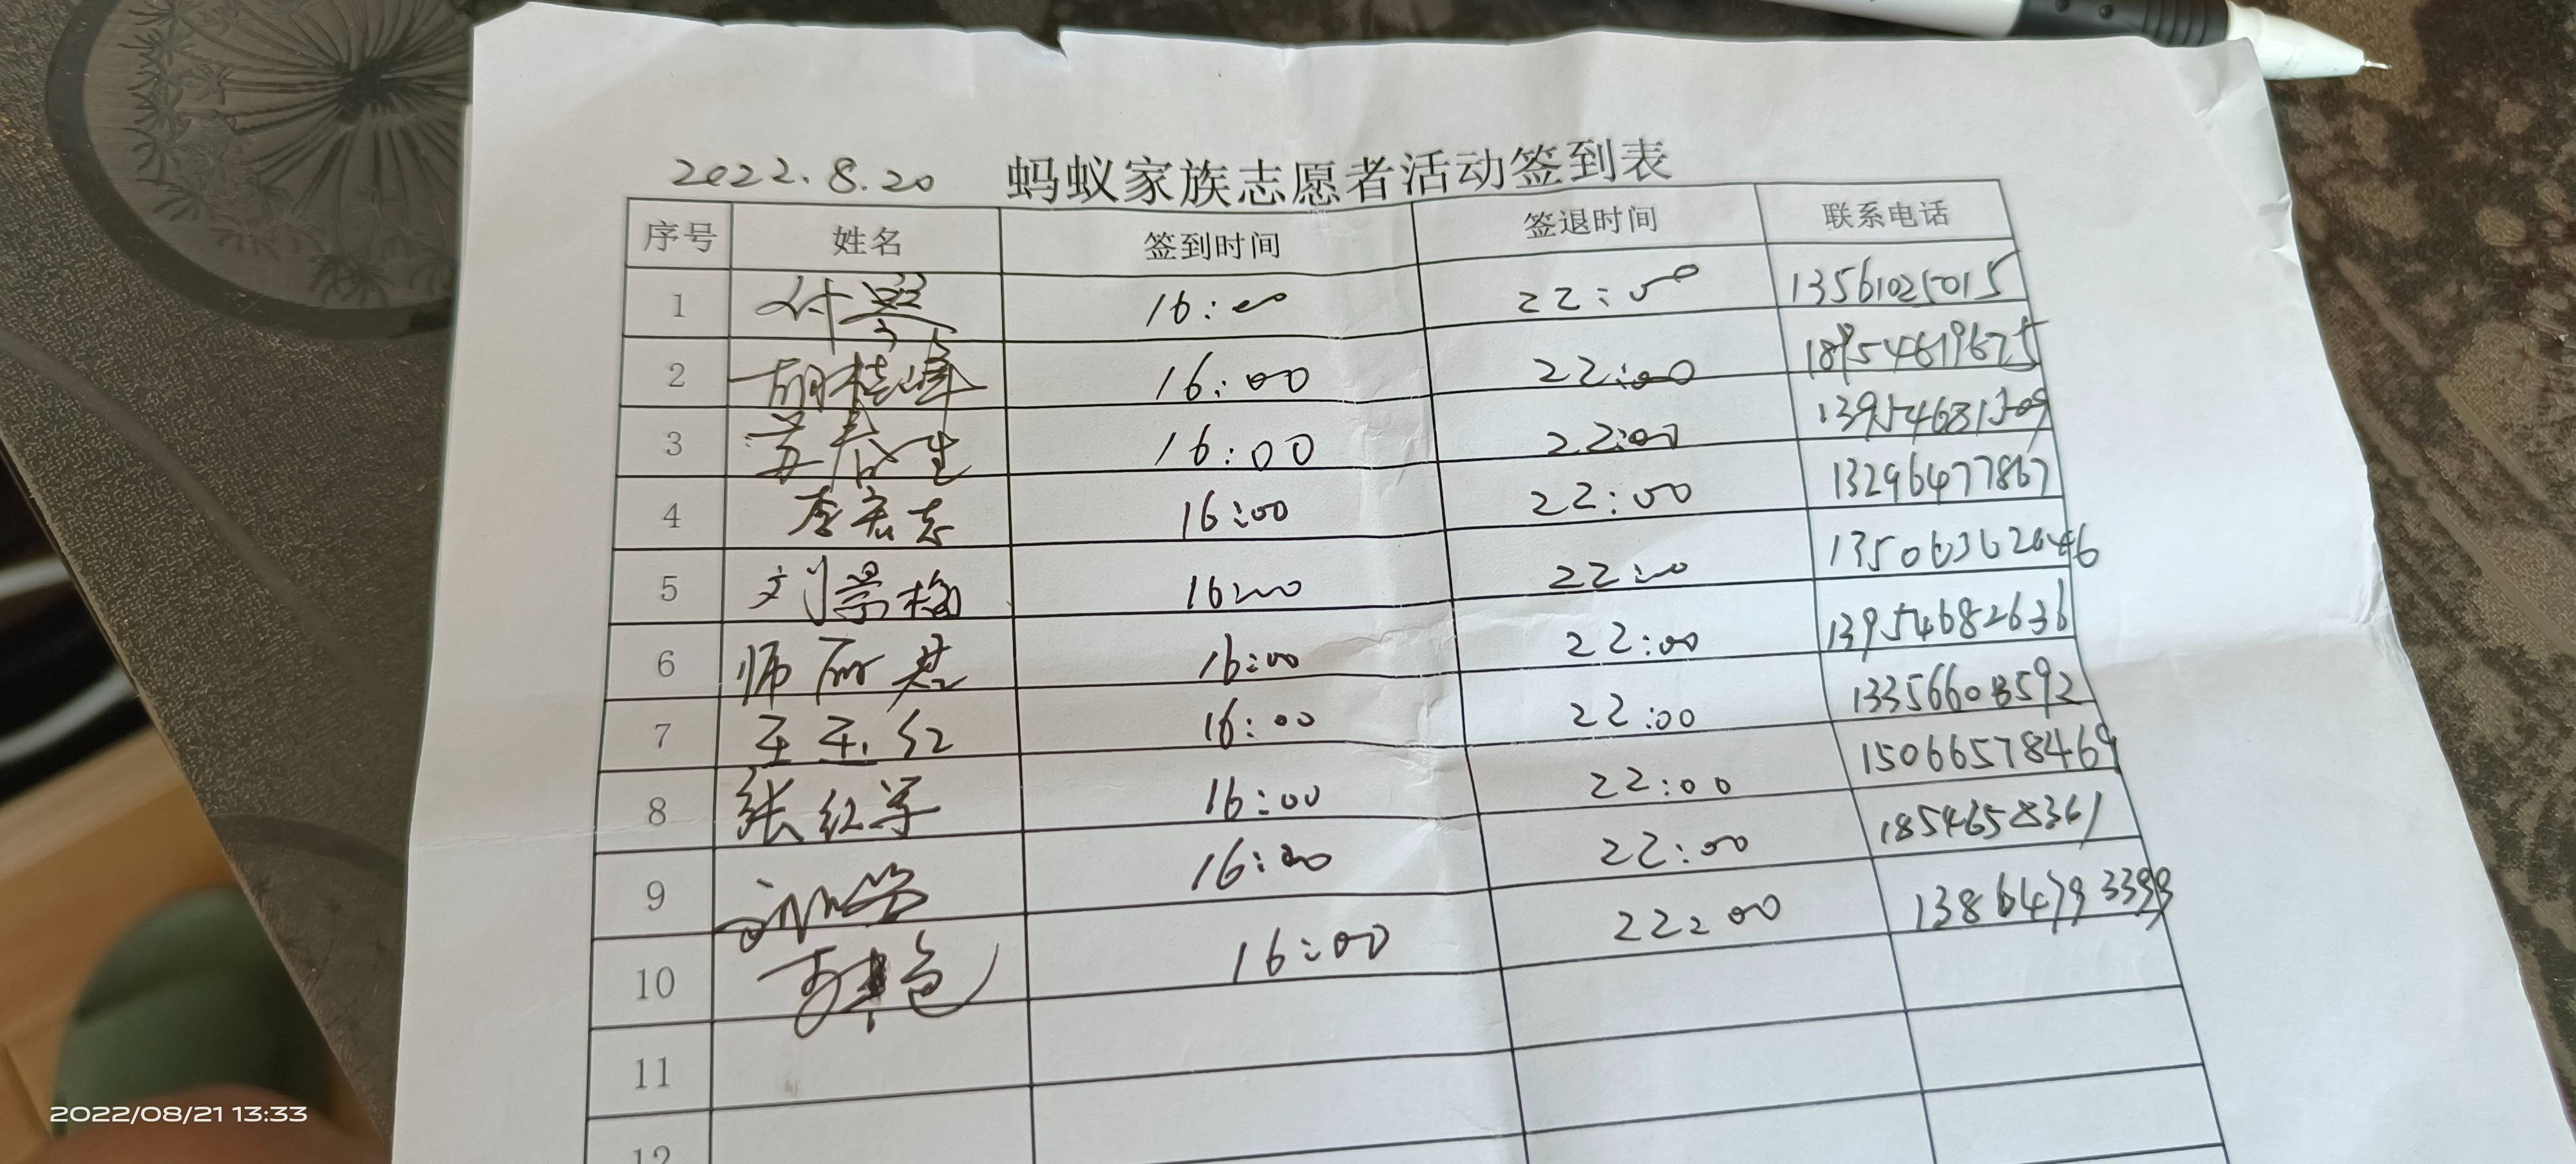 2022.8.20 蚂蚁家族志愿者活动签到表
序号 姓名 签到时间 签退时间 联系电话
1 付翠 16:00 22:00 13561025015
2 胡桂峰 16:00 22:00 18954619675
3 苏春生 16:00 22:00 13954681509
4 李宏志 16:00 22:00 13296477867
5 刘景梅 16:00 22:00 13506362046
6 师丽君 16:00 22:00 13954682636
7 王玉红 16:00 22:00 13356603592
8 张红军 16:00 22:00 15066578469
9 16:00 22:00 1854658361
10 16:00 22:00
11
12
2022/08/21 13:33